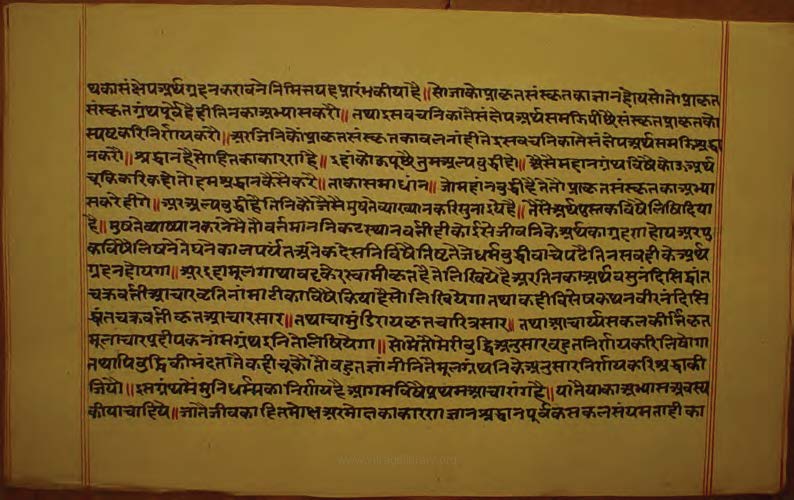 थकासंक्षेपअर्थग्रहनकरावनेनिमित्तयहप्रारंभकीयाहै॥सोजाकोप्राकृतसंस्कृतकाज्ञानहोयसोतोप्राकृत
संस्कृतग्रंथपूर्वहैहीतिनकाअभ्यासकरो॥तथाइसवचनिकातैसंक्षेपअर्थसमझिपीछैसंस्कृतप्राकृतको
स्पष्टकरिनिर्णयकरो॥अरजिनिकोप्राकृतसंस्कृतकाबलनांहीतेइसवचनिकातेसंक्षेपअर्थसमझिश्रद्धा
नकरो॥श्रद्धानहैसोहितकाकारणहै॥इहांकोऊपूछैतुमअल्पबुद्धीहो॥औसेमहानग्रंथविषैकोऊअर्थ
चूकिकरिकहोतोहमश्रद्धानकैसेकरै॥ताकासमाधान॥जोमहांनबुद्धीहैतेतोप्राकृतसंस्कृतकाअभ्या
सकरेहीगे॥अरअल्पबुद्धीहैतिनिकोजैसेमुषतेव्याख्यानकरिसुनाइयेहै॥तैसेअर्थपुस्तकविषैलिषिदिया
है॥मुषतेव्याष्यानकरनेमैतोवर्तमाननिकटस्थानवर्त्तीहीकोईसेजीवनिकेअर्थकाग्रहणहोयअरपु
कविषैलिषनेतेघनेकालपर्यंतअनेकदेसनिविषैतिष्टतेजेधर्मबुद्धीवाचेपढैतिनसबहीकेअर्थ
ग्रहनहोयगा॥अरइहामूलगाथावट्टकेरस्वामीकृतहैतेलिखियेहैअरतिनकाअर्थवसुनंदिसिद्धांत
चक्रवर्त्तीआचारवृतिनांमाटीकाविषैकियाहैसोलिखियेगातथाकहीविसेषकथनवीरनंदिसि
द्धांतचक्रवर्त्तीकृतआचारसार॥तथाचामुंडिरायकृतचारित्रसार॥तथाआचार्यसकलकीर्त्तिकृत
मूलाचारप्रदीपकनांमग्रंथइनितेलिषियेगा॥सोमैंतोमेरीबुद्धिअनुसारबहुतनिर्णयकरिलिषोगा
तथापिबुद्धिकीमंदतातैकहीचूकोतोबहुतज्ञांनीनितैमूलग्रंथनिकेअनुसारनिर्णयकरिश्रद्धाकी
जियो॥इसग्रंथमेमुनिधर्म्मकानिर्णयहैआगमविषैप्रथमआचारांगहै॥यातेयाकाअभ्यासअवस्य
कीयाचाहिये॥जातेजीवकाहितमोक्षअरमोक्षकाकारणज्ञानश्रद्धानपूर्वकसकलसंयमताहीका